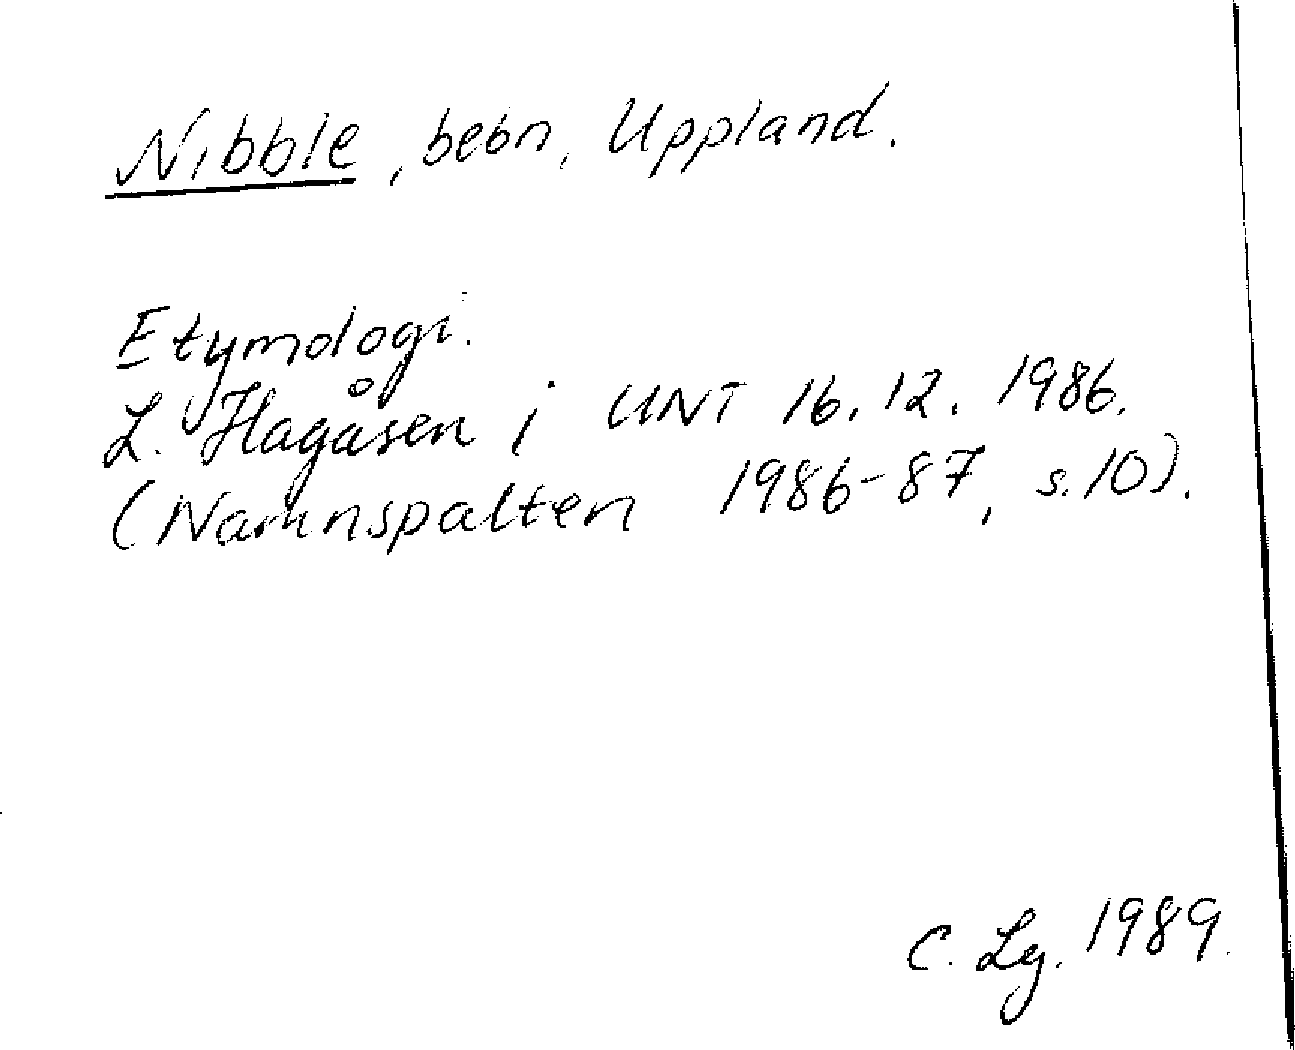 Nibble, bebn, Uppland.
Etymologi.
L. Hagåsen i UNT 16.12.1986.
(Namnspalten 1986-87, s.10).
C. Lg. 1989.